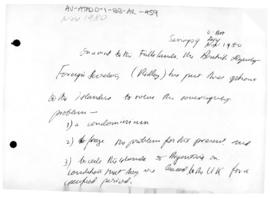 AV-ATAD0-1-88-AR-459
Nov 1980
Nov 1980
to the Falklands the British Deputy
Foreign Secretary (Ridley) has put three options
to the islanders to solve the sovereignty
problem —
1) a condominium
2) to freeze the problem for the present and
3) to cede the islands to Argentina on
condition that they were leased to the UK for a
specified period.